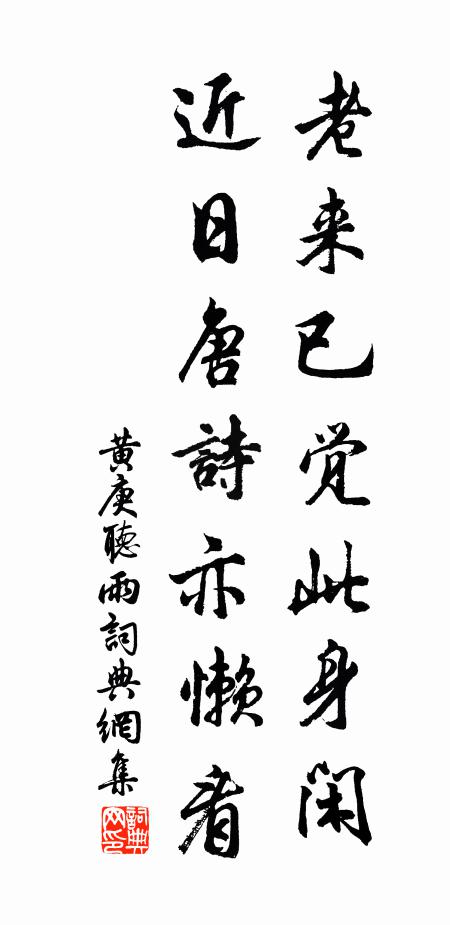 老来已觉此身闲
近日唐詩亦懒看
黄庚聽雨詞典網集
詞典
网印